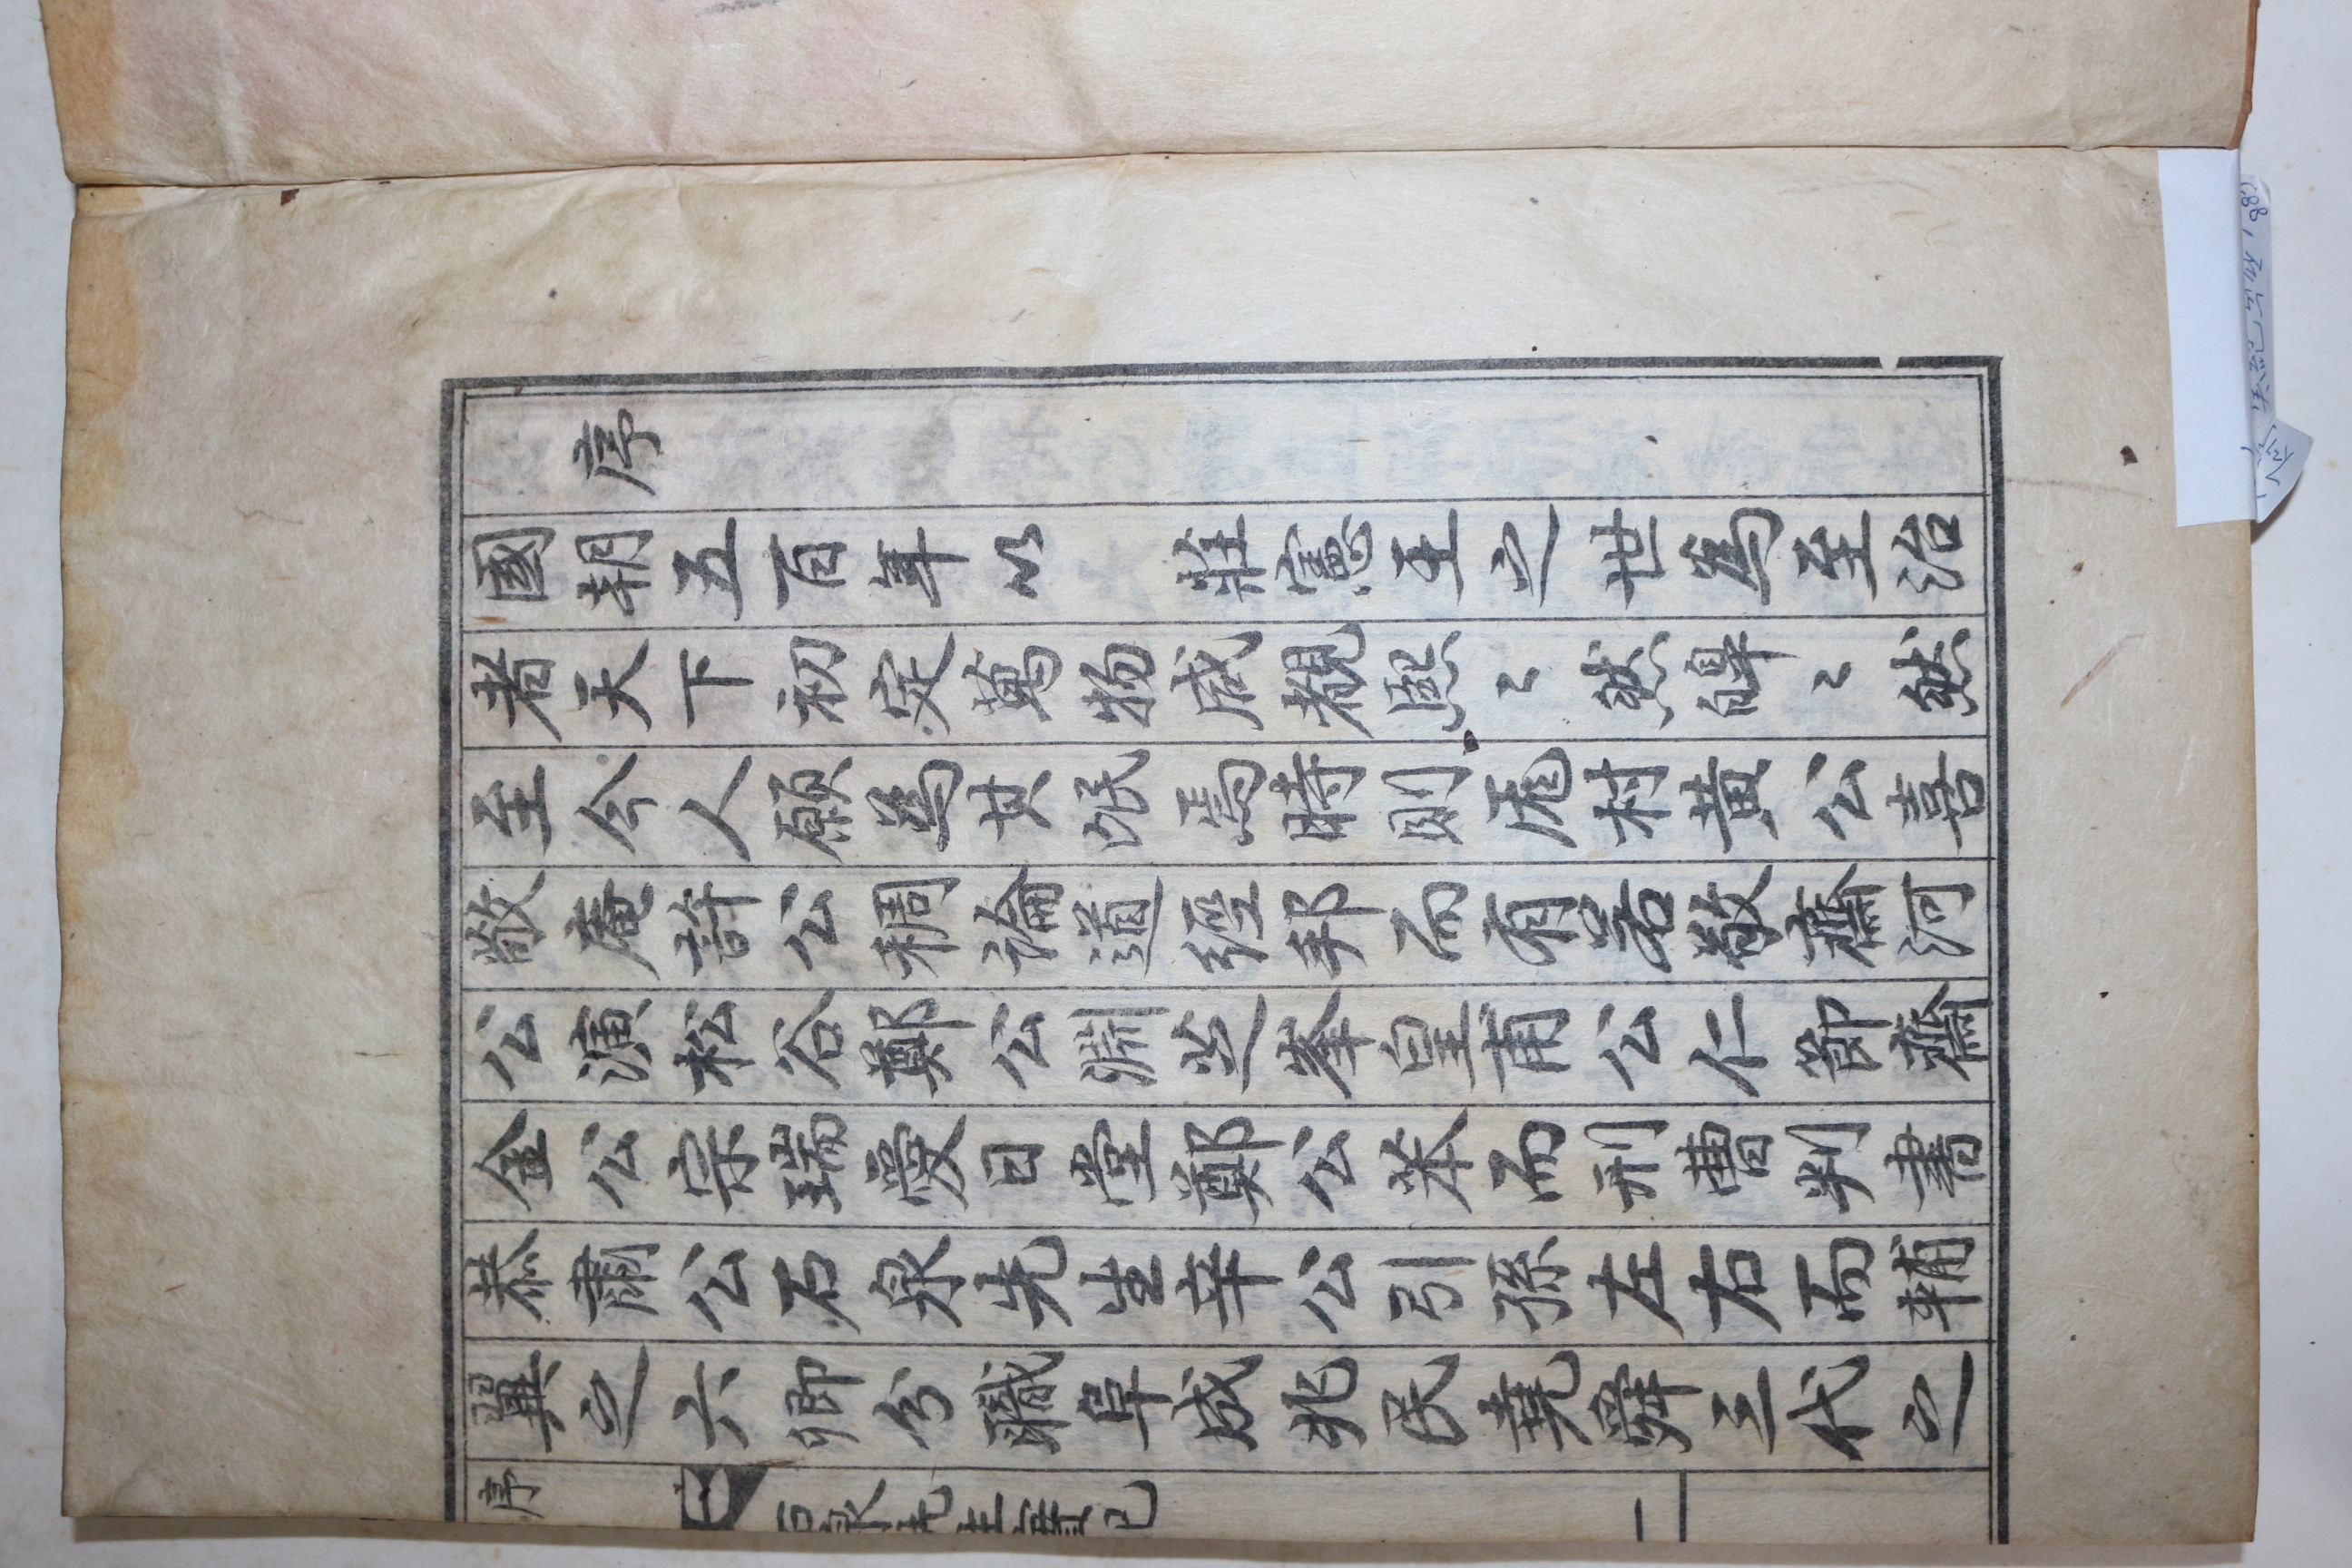 序
國朝五百年以　莊憲王之世為至治
者天下初定萬物咸覩熙〻然皥〻然
至今人願為其氓焉時則厖村黃公喜
敬庵許公稠論道經邦而有若敬齋河
公演松谷鄭公淵芝峯皇甫公仁節齋
金公宗瑞愛日堂鄭公苯而刑曹判書
恭肅公石泉先生辛公引孫左右而輔
翼之六卿分職阜成兆民堯舜三代之
序
石泉先生實記
一